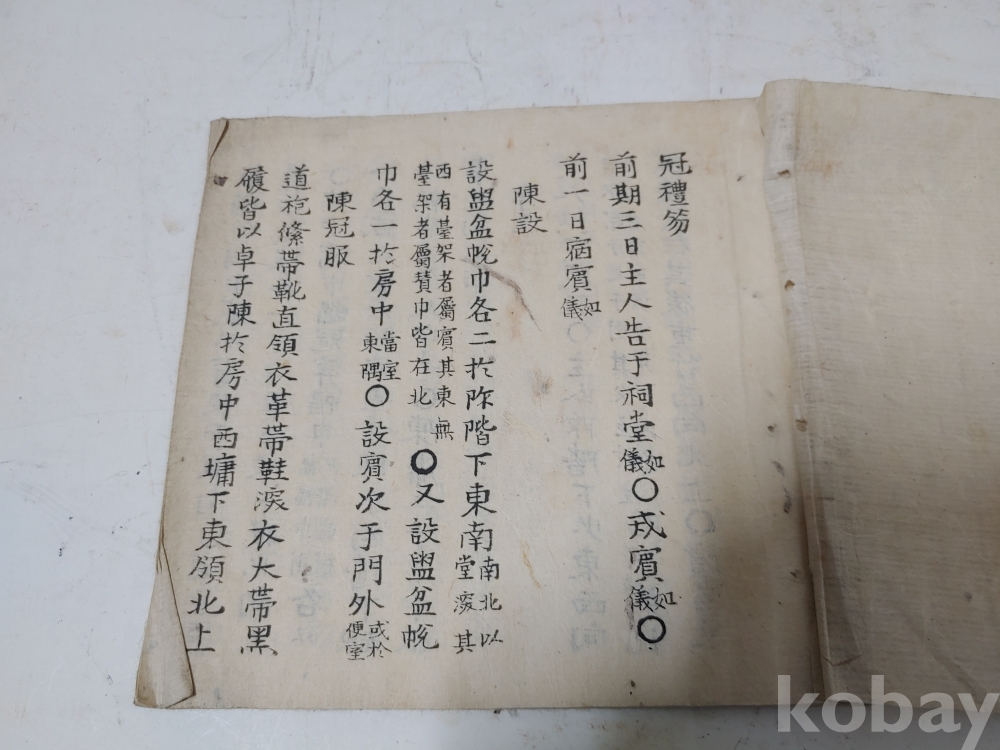 冠禮笏
前期三日主人告于祠堂如儀○戒賓如儀○
前一日宿賓如儀
陳設
設盥盆帨巾各二扵阼階下東南南北以堂深其
西有臺架者屬賓其東無臺架者屬賛巾皆在北○又設盥盆帨
巾各一扵房中當室東隅○設賓次于門外或扵便室
陳冠服
道袍絛帶靴直領衣革帶鞋深衣大帶黑
履皆以卓子陳扵房中西墉下東領北上
kobay